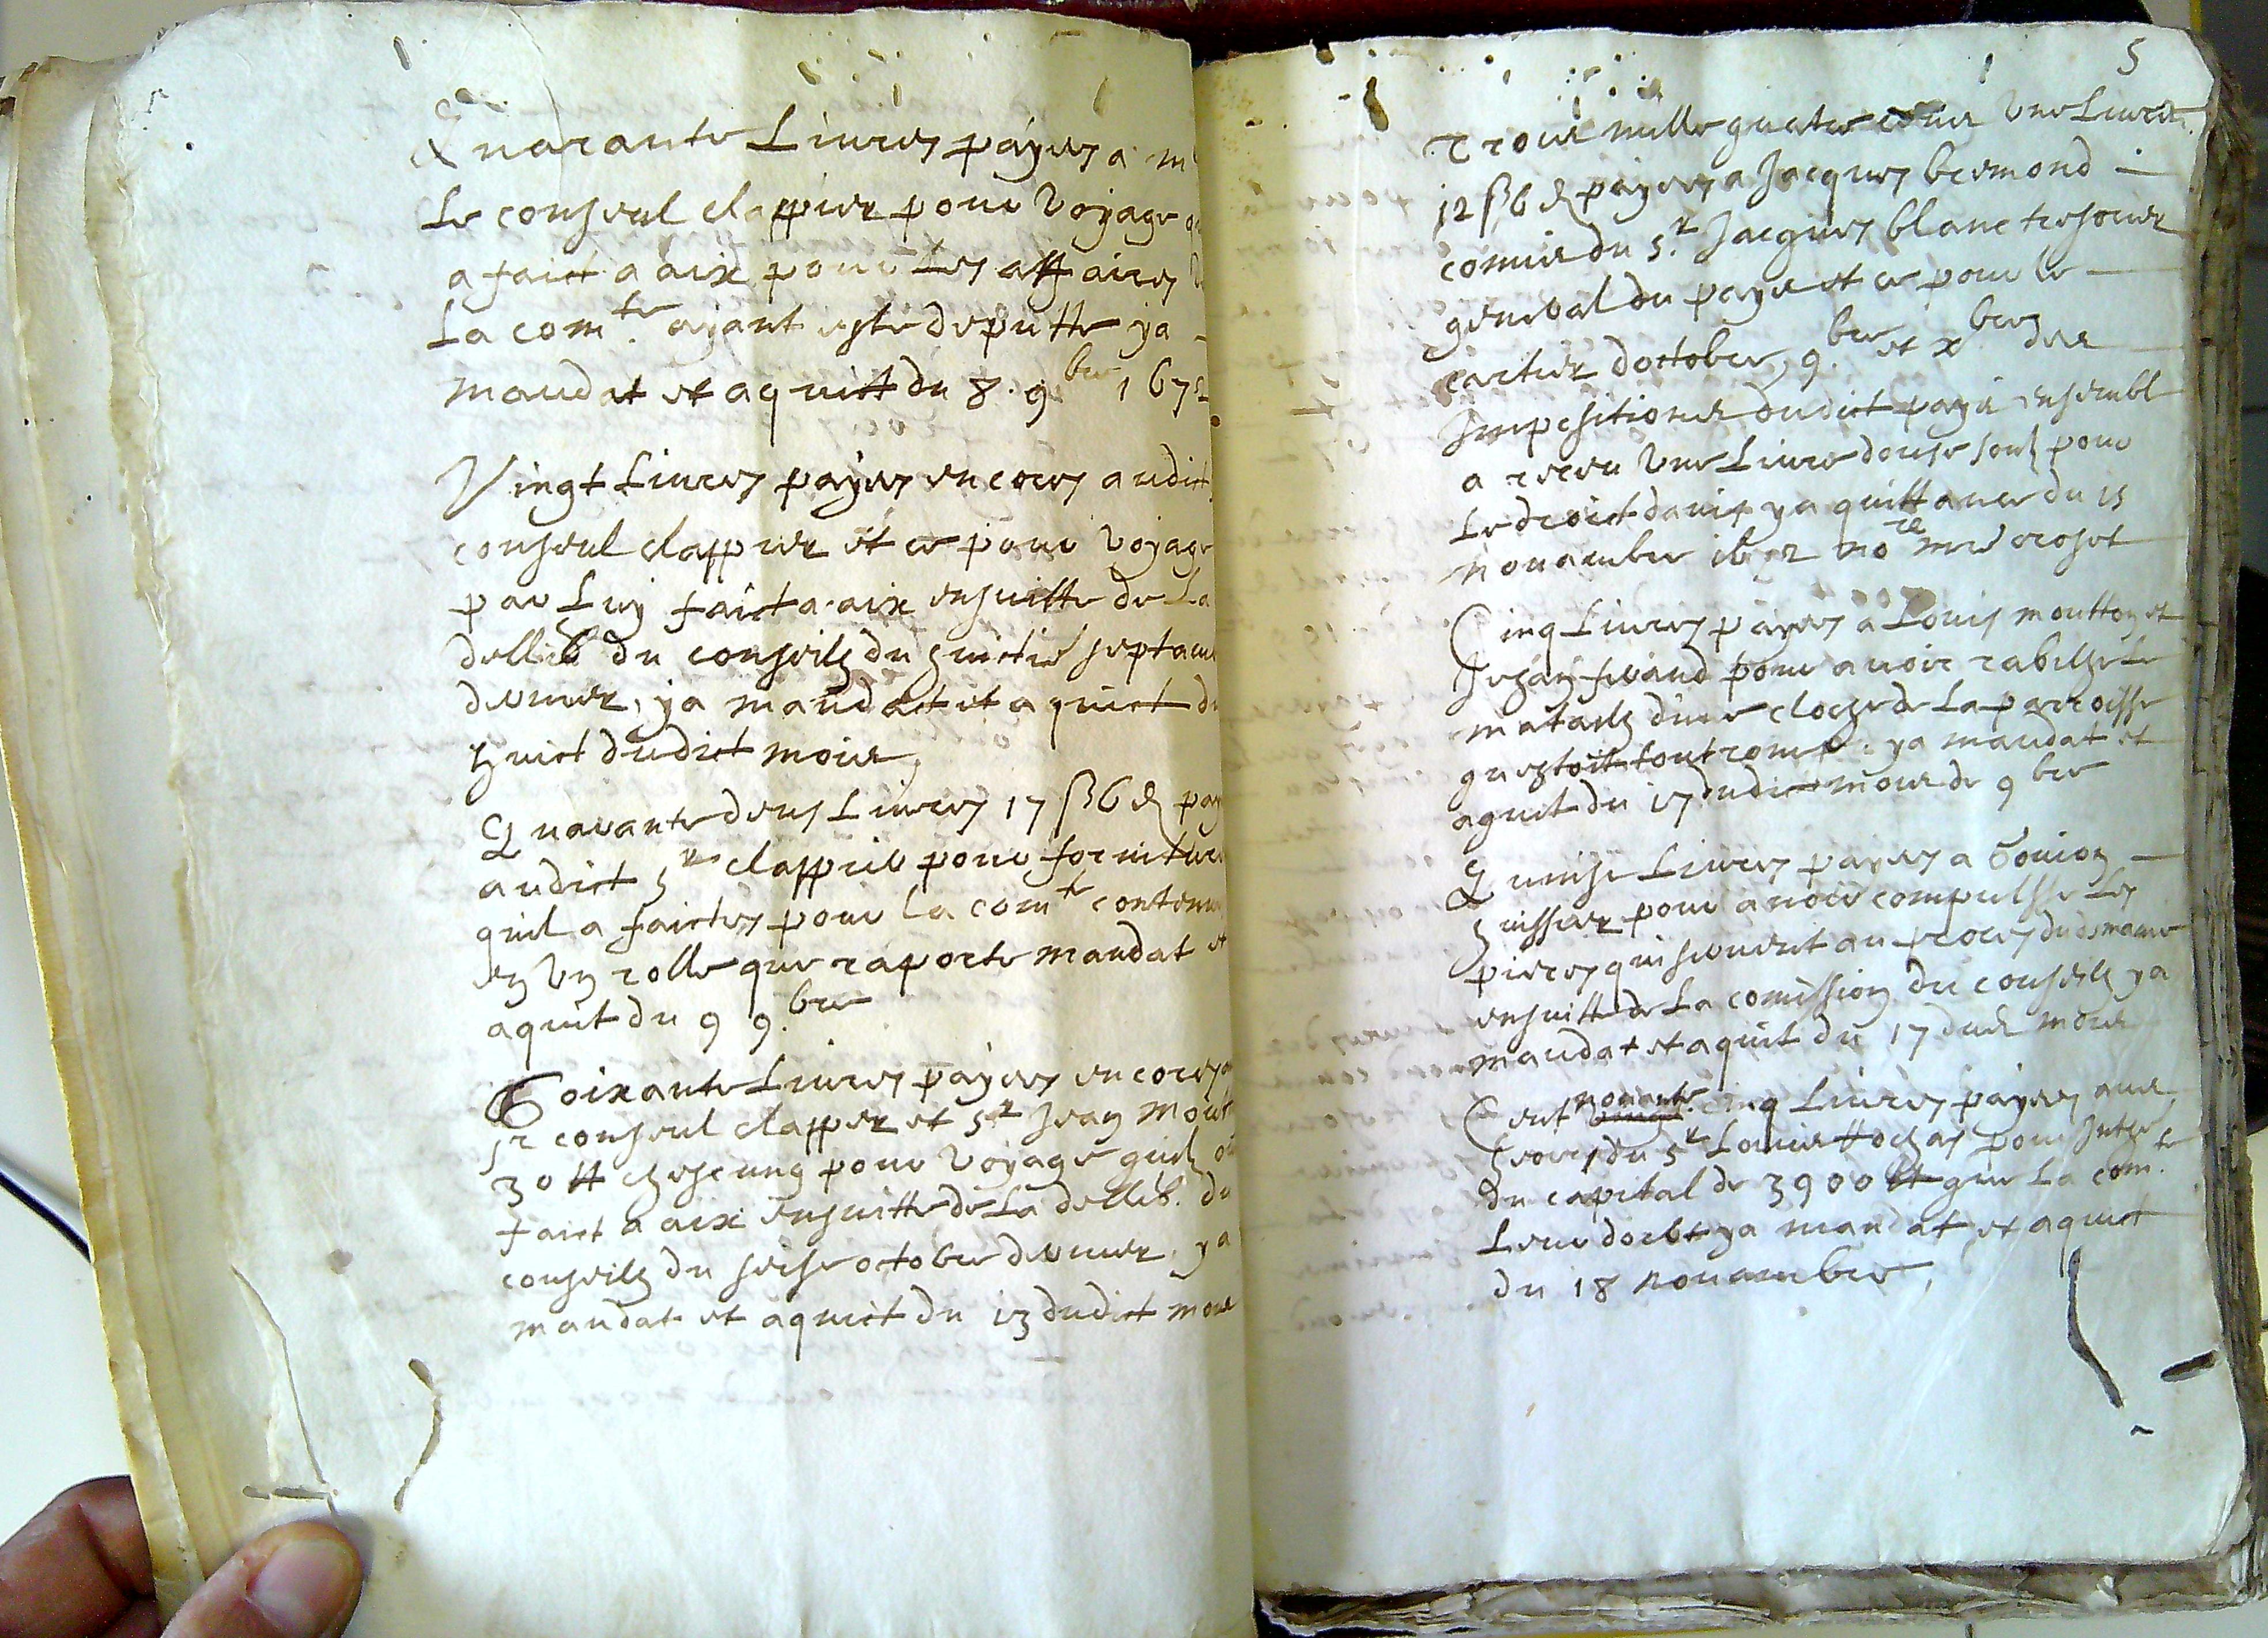 Quarante Livres payes a m
Le conseul clappier pour voyage
a faict a aix pour Les affaires
La comte ayant este deputte ya
mandat et aquitt du 8. 9bre 167
Vingt Livres payes encores audict
conseul clappier et ce pour voyage
par Luy faict a aix ensuitte de La
dellib du conseilh du huictie septam
dernier, ya mandat et aquict du
huict dudict mois,
Quarante deus Livres 17 ß 6 d pay
audict sr clappier pour fornitures
quil a faictes pour la comte contenu
en un rolle que raporte mandat et
aquit du 9 9.bre
Soixante Livres payes encores a
sr conseul clapper et sr Jean mout
30 tt chescung pour voyage quilz o
faict a aix ensuitte de La dellib. du
conseilh du seise octobre dernier, ya
mandat et aquict du 13 dudict mois
5
Trois mille quatre Une Livres
12 ß 6 d payes a Jacques bremond
comis du sr Jacques blanc tresorier
general du pays et ce pour le
cartier doctobre, 9.bre et xbre des
Impositions dudict pays ensembl
a receu Une Livre douse soulz pour
Le droict davis ya quittance du 15
nouambre nore croset
Cinq Livres payes a Louis moutton et
Jehan pour avoir rabilhe Le
matailh dune cloche de La parroisse
questoit tout romp. ya mandat et
aquit du 17 dudict mois de 9bre
Quinse Livres payes a
huissier pour avoir compulsse Les
pieces qui servent au proces du domaine
ensuitte de La comission du conseilh ya
mandat et aquit du 17 dud mois
Cent nonante cinq Livres payes aux
hoirs du sr Louis pour Inthe
du capital de 3900 tt que La comte
Leur doibt ya mandat, et aquict
du 18 nouambre,